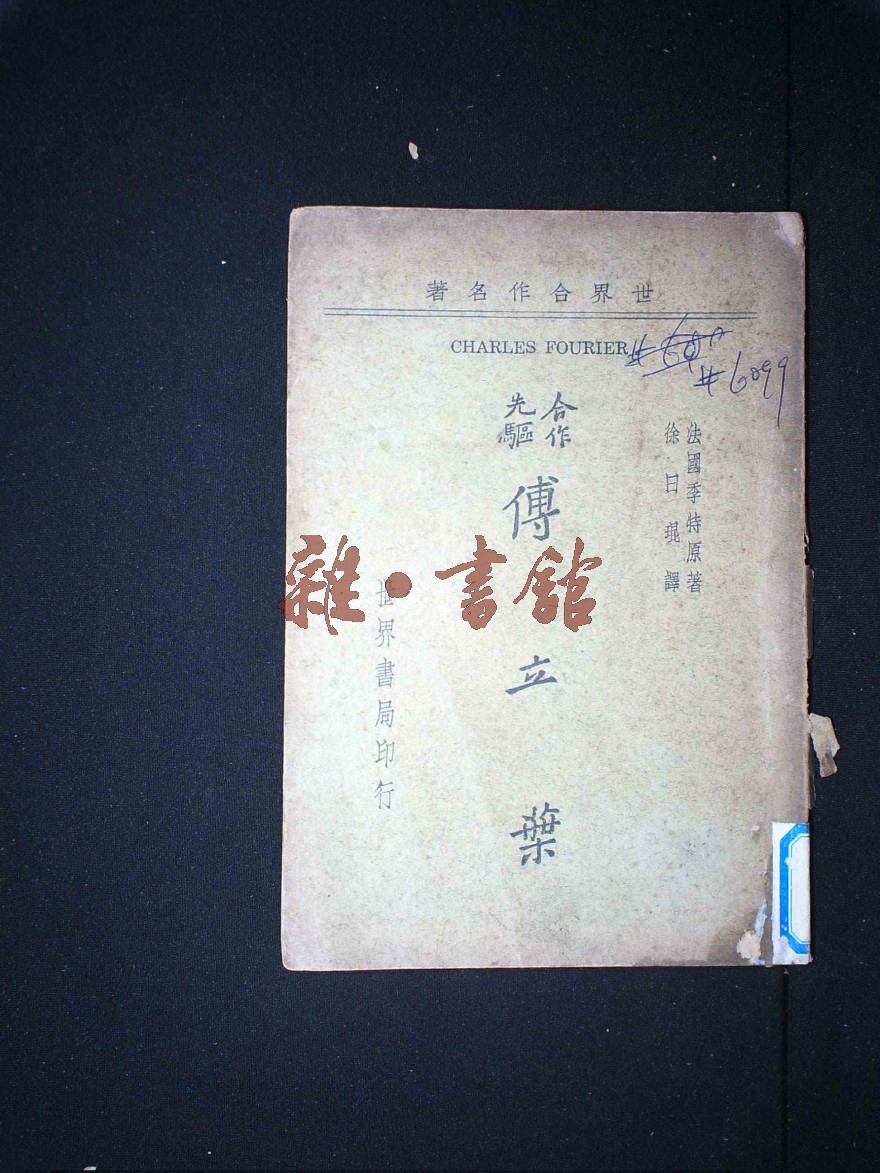 世界合作名著
CHARLES FOURIER
#6099
法國季特原著
徐日琨譯
合作
先驅
傅立葉
世界書局印行
雜·書館